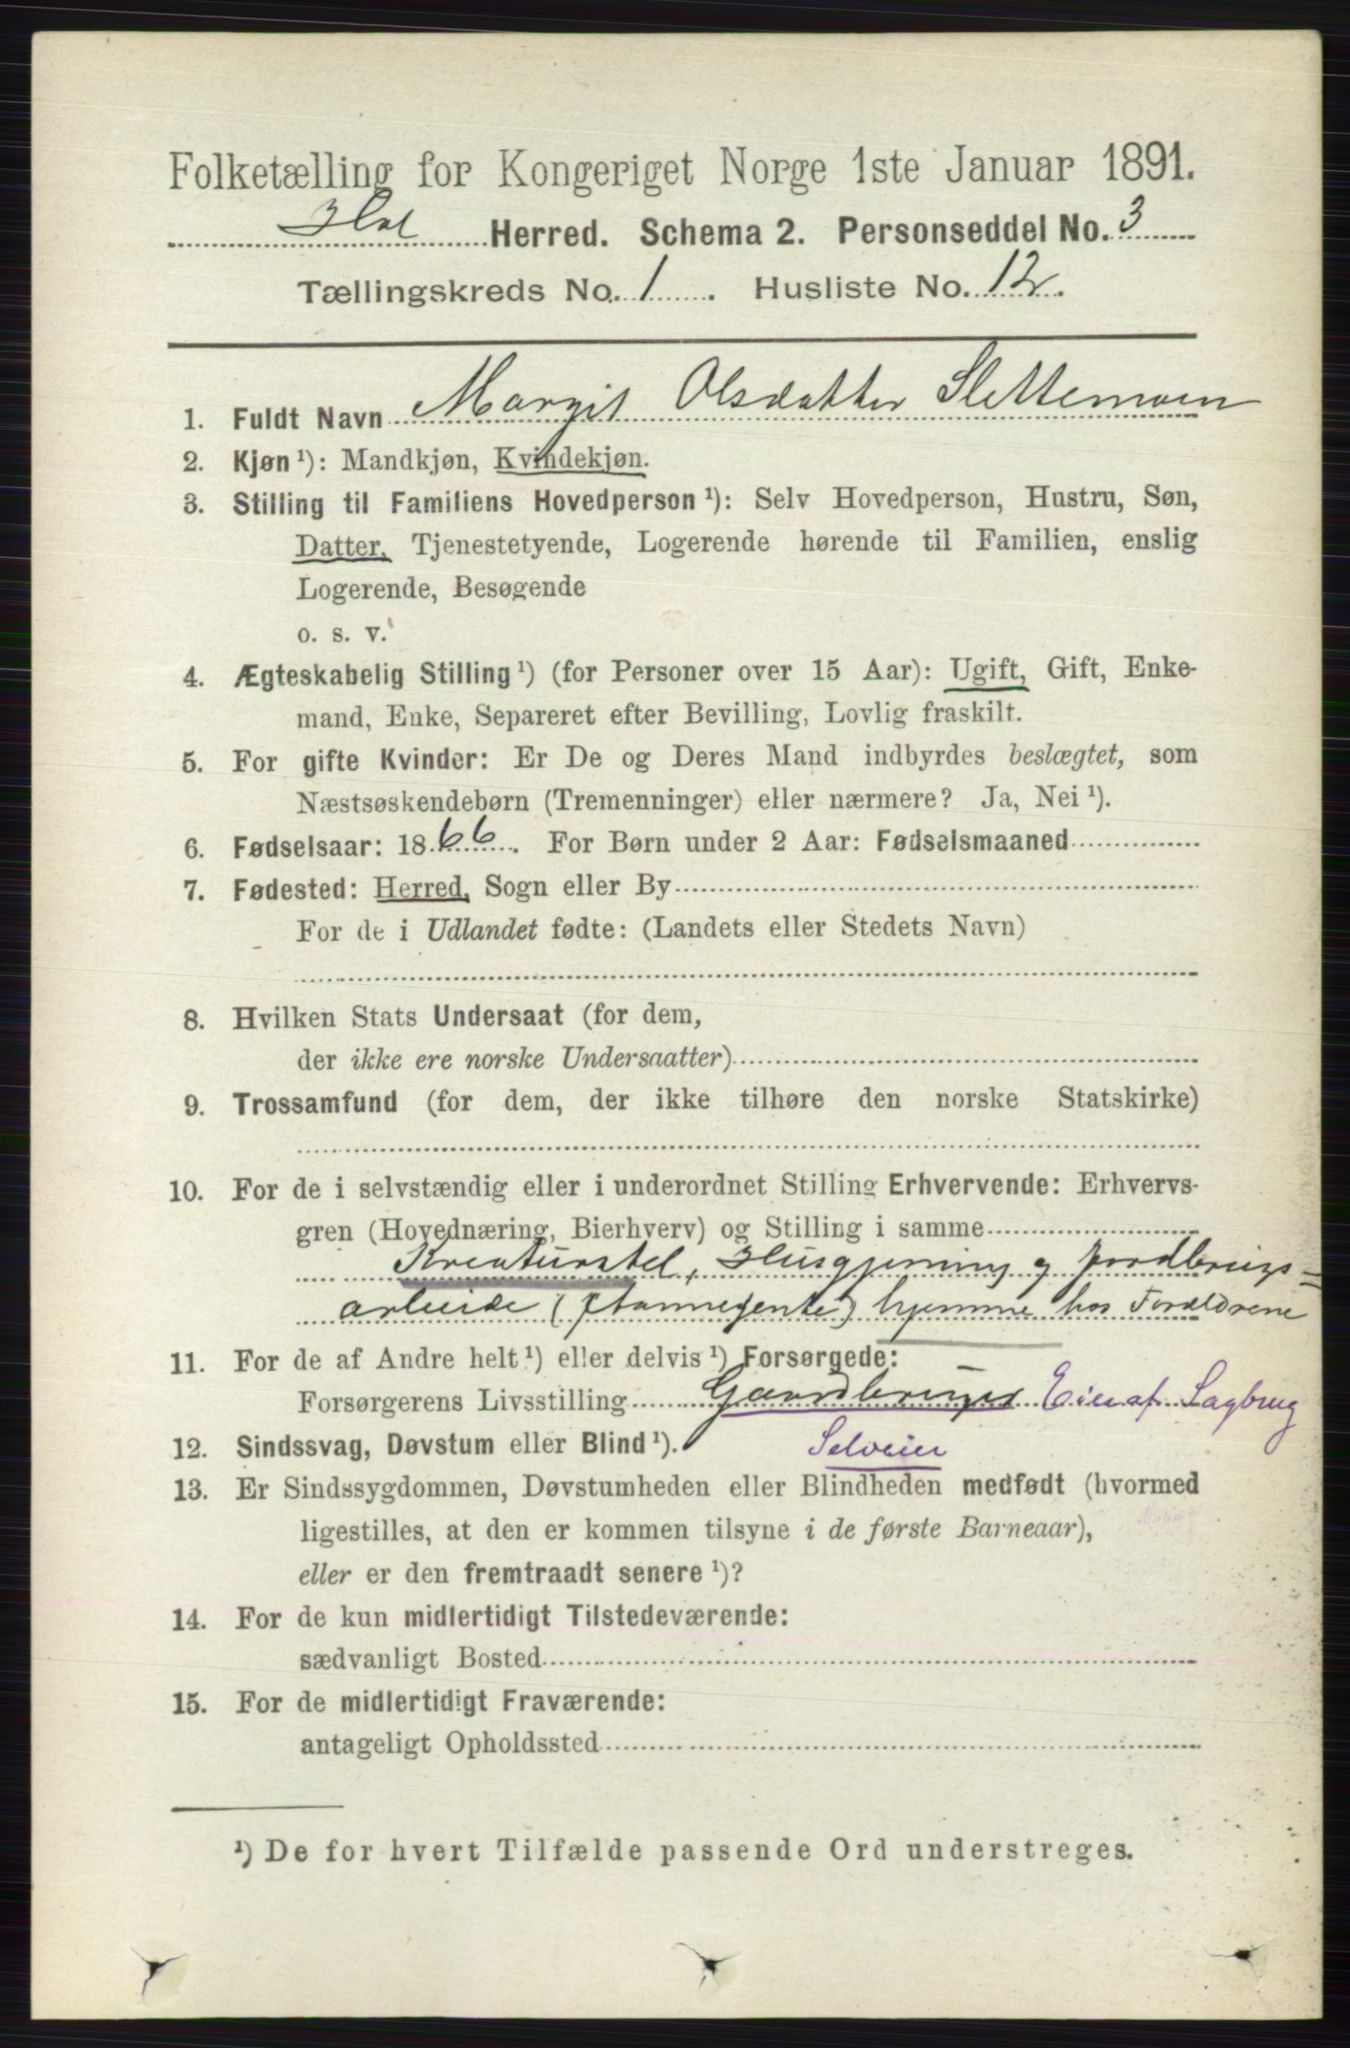 Folketælling for Kongeriget Norge 1ste Januar 1891.
Hol Herred. Schema 2. Personseddel No. 3
Tællingskreds No. 1. Husliste No. 12.
1. Fuldt Navn Margit Olsdatter Slettemoen
2. Kjøn ¹): Mandkjøn, Kvindekjøn.
3. Stilling til Familiens Hovedperson ¹): Selv Hovedperson, Hustru, Søn,
Datter, Tjenestetyende, Logerende hørende til Familien, enslig
Logerende, Besøgende
o. s. v.
4. Ægteskabelig Stilling ¹) (for Personer over 15 Aar): Ugift, Gift, Enke-
mand, Enke, Separeret efter Bevilling, Lovlig fraskilt.
5. For gifte Kvinder: Er De og Deres Mand indbyrdes beslægtet, som
Næstsøskendebørn (Tremenninger) eller nærmere? Ja, Nei ¹).
6. Fødselsaar: 1866. For Børn under 2 Aar: Fødselsmaaned
7. Fødested: Herred, Sogn eller By
For de i Udlandet fødte: (Landets eller Stedets Navn)
8. Hvilken Stats Undersaat (for dem,
der ikke ere norske Undersaatter)
9. Trossamfund (for dem, der ikke tilhøre den norske Statskirke)
10. For de i selvstændig eller i underordnet Stilling Erhvervende: Erhvervs-
gren (Hovednæring, Bierhverv) og Stilling i samme
Kreaturstel, Husgjerning og Jordbrugs-
arbeide ( ) hjemme hos Forældrene
11. For de af Andre helt ¹) eller delvis ¹) Forsørgede:
Forsørgerens Livsstilling Gaardbruger Eier af Sagbrug
12. Sindssvag, Døvstum eller Blind ¹). Selveier
13. Er Sindssygdommen, Døvstumheden eller Blindheden medfødt (hvormed
ligestilles, at den er kommen tilsyne i de første Barneaar),
eller er den fremtraadt senere ¹)?
14. For de kun midlertidigt Tilstedeværende:
sædvanligt Bosted
15. For de midlertidigt Fraværende:
antageligt Opholdssted
¹) De for hvert Tilfælde passende Ord understreges.